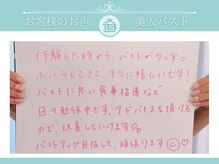 お客様のお声 美人バスト
体験した時から、バストが少しずつ
ふっくらしてきて、本当に嬉しいです!
バストに良い食事指導など
日々勉強中です。アドバイスを頂ける
ので、改善していけます。
バストアップ目指して、頑張ります